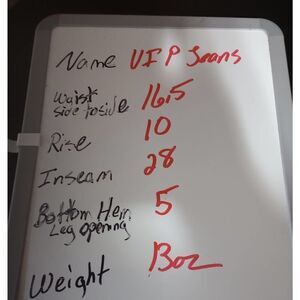 Name VIP Jeans
Waist 16.5
side inside
Rise 10
Inseam 28
Bottom Hem 5
Leg opening
Weight 13oz